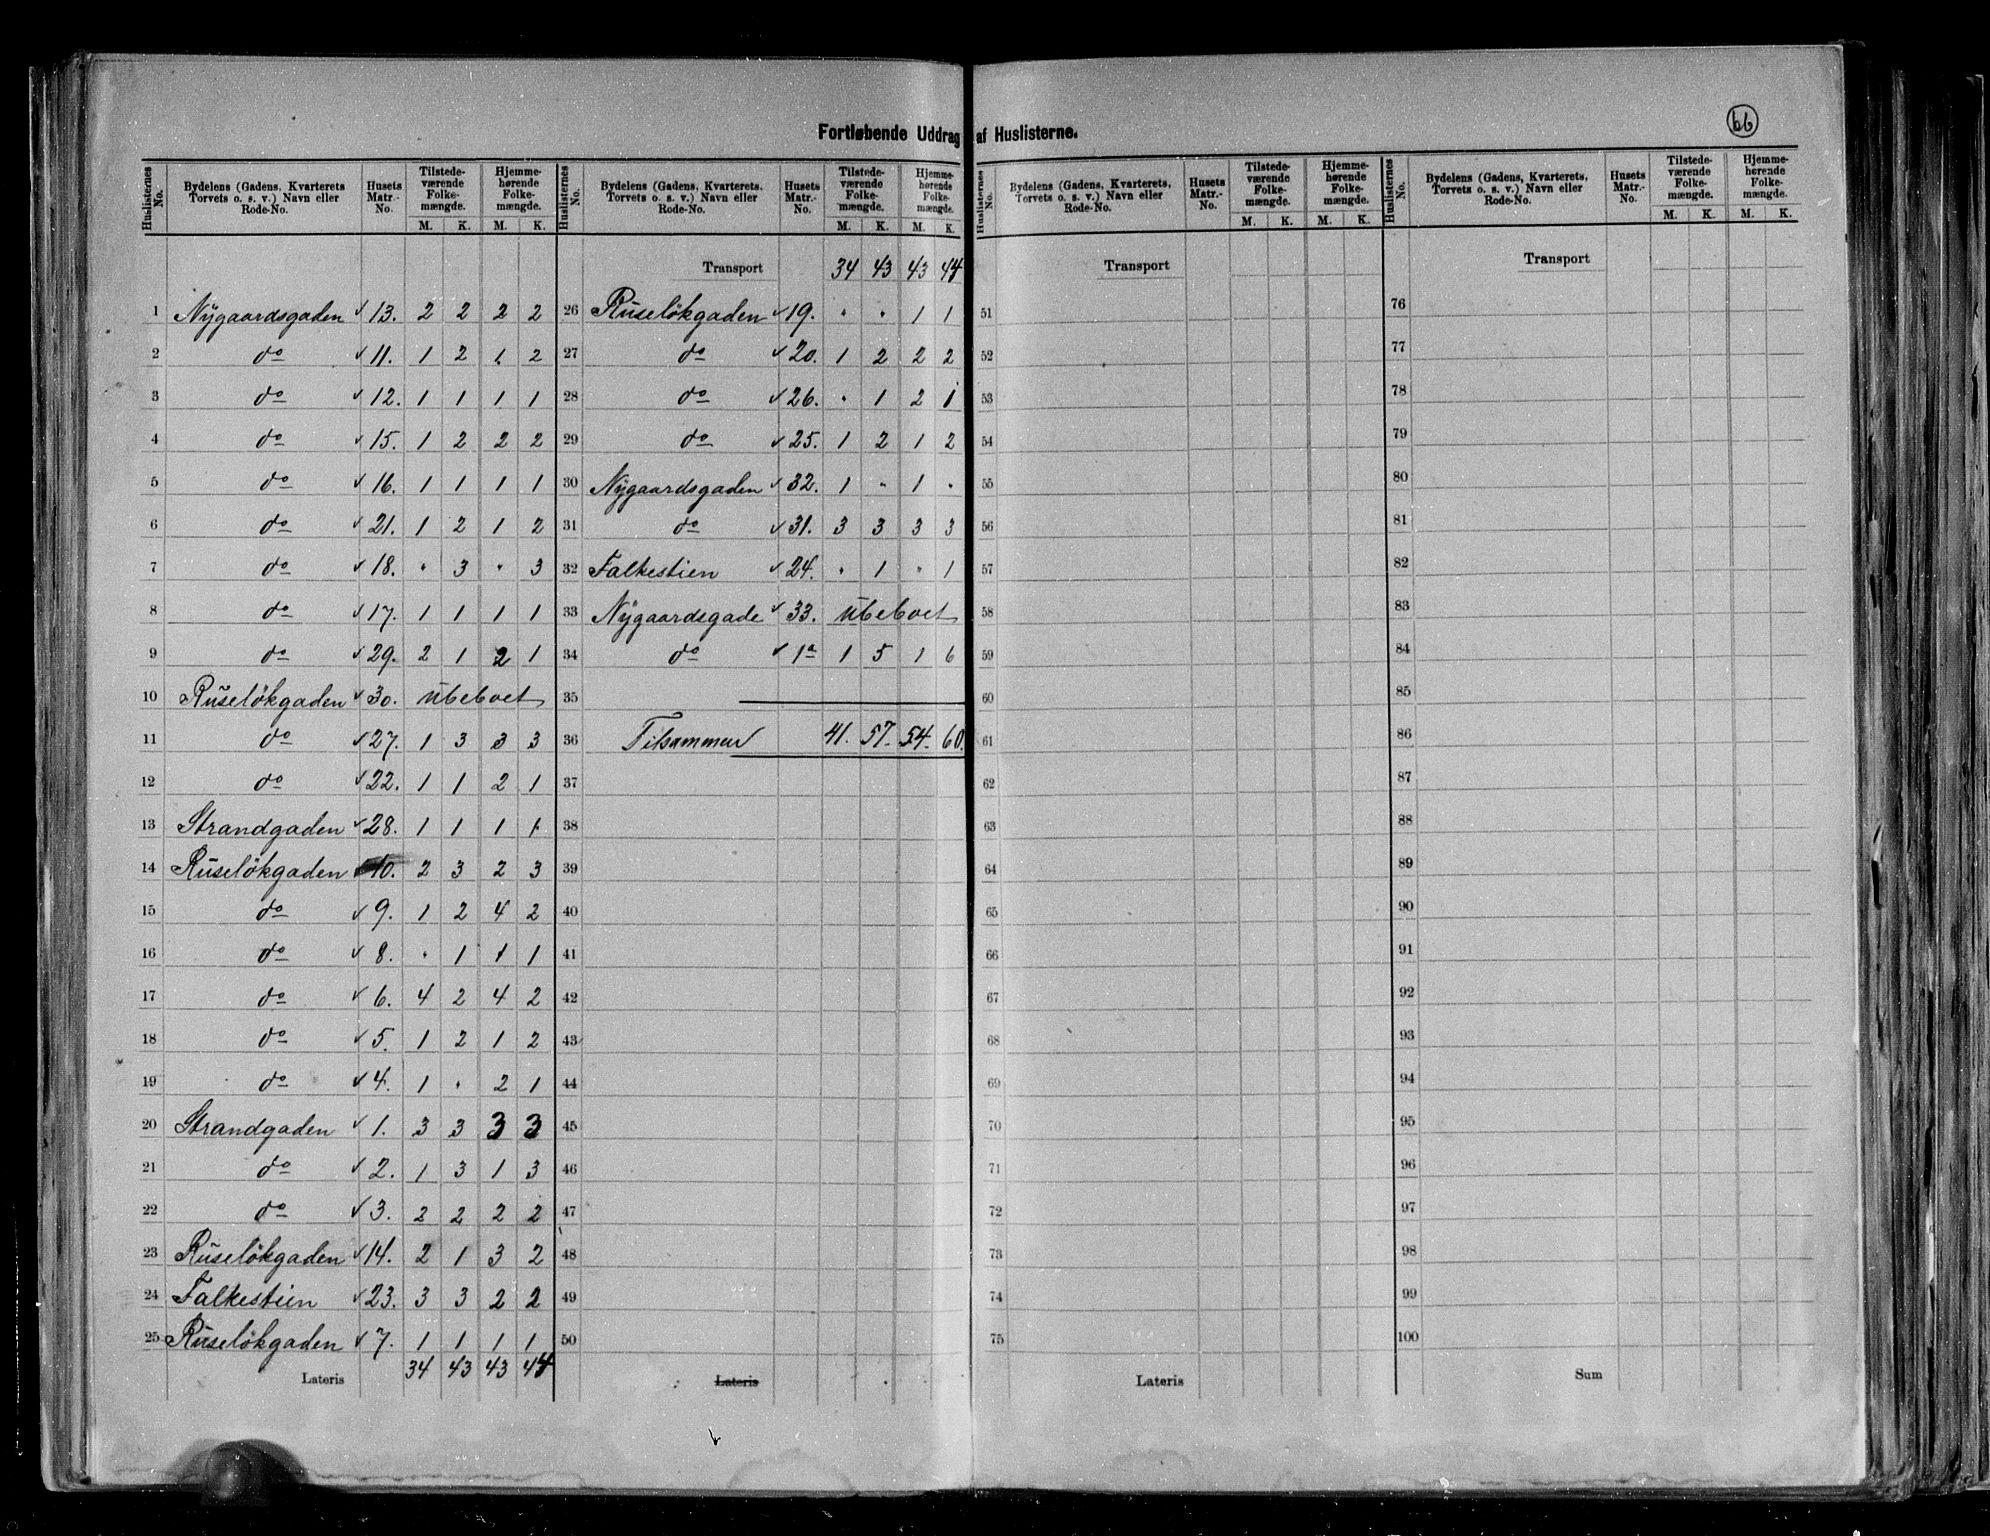 Fortløbende Uddrag af Huslisterne.
66
Huslisternes No. | Bydelens (Gadens, Kvarterets, Torvets o. s. v.) Navn eller Rode-No. | Husets Matr.-No. | Tilstedeværende Folkemængde. M. K. | Hjemmehørende Folkemængde. M. K.
1 Nygaardsgaden 13. 2 2 2 2
2 do 11. 1 2 1 2
3 do 12. 1 1 1 1
4 do 15. 1 2 2 2
5 do 16. 1 1 1 1
6 do 21. 1 2 1 2
7 do 18. " 3 " 3
8 do 17. 1 1 1 1
9 do 29. 2 1 2 1
10 Ruseløkgaden 30. ubeboet
11 do 27. 1 3 3 3
12 do 22. 1 1 2 1
13 Strandgaden 28. 1 1 1 1
14 Ruseløkgaden 10. 2 3 2 3
15 do 9. 1 2 4 2
16 do 8. " 1 1 1
17 do 6. 4 2 4 2
18 do 5. 1 2 1 2
19 do 4. 1 " 2 1
20 Strandgaden 1. 3 3 3 3
21 do 2. 1 3 1 3
22 do 3. 2 2 2 2
23 Ruseløkgaden 14. 2 1 3 2
24 Falkestien 23. 3 3 2 2
25 Ruseløkgaden 7. 1 1 1 1
Lateris 34 43 43 44
Huslisternes No. | Bydelens (Gadens, Kvarterets, Torvets o. s. v.) Navn eller Rode-No. | Husets Matr.-No. | Tilstedeværende Folkemængde. M. K. | Hjemmehørende Folkemængde. M. K.
Transport 34 43 43 44
26 Ruseløkgaden 19. " " 1 1
27 do 20. 1 2 2 2
28 do 26. " 1 2 1
29 do 25. 1 2 1 2
30 Nygaardsgaden 32. 1 " 1 "
31 do 31. 3 3 3 3
32 Falkestien 24. " 1 " 1
33 Nygaardsgade 33. ubeboet
34 do 1a 1 5 1 6
35
36 Tilsammen 41. 57. 54. 60.
37
38
39
40
41
42
43
44
45
46
47
48
49
50
Lateris
Huslisternes No. | Bydelens (Gadens, Kvarterets, Torvets o. s. v.) Navn eller Rode-No. | Husets Matr.-No. | Tilstedeværende Folkemængde. M. K. | Hjemmehørende Folkemængde. M. K.
Transport
51
52
53
54
55
56
57
58
59
60
61
62
63
64
65
66
67
68
69
70
71
72
73
74
75
Lateris
Huslisternes No. | Bydelens (Gadens, Kvarterets, Torvets o. s. v.) Navn eller Rode-No. | Husets Matr.-No. | Tilstedeværende Folkemængde. M. K. | Hjemmehørende Folkemængde. M. K.
Transport
76
77
78
79
80
81
82
83
84
85
86
87
88
89
90
91
92
93
94
95
96
97
98
99
100
Sum